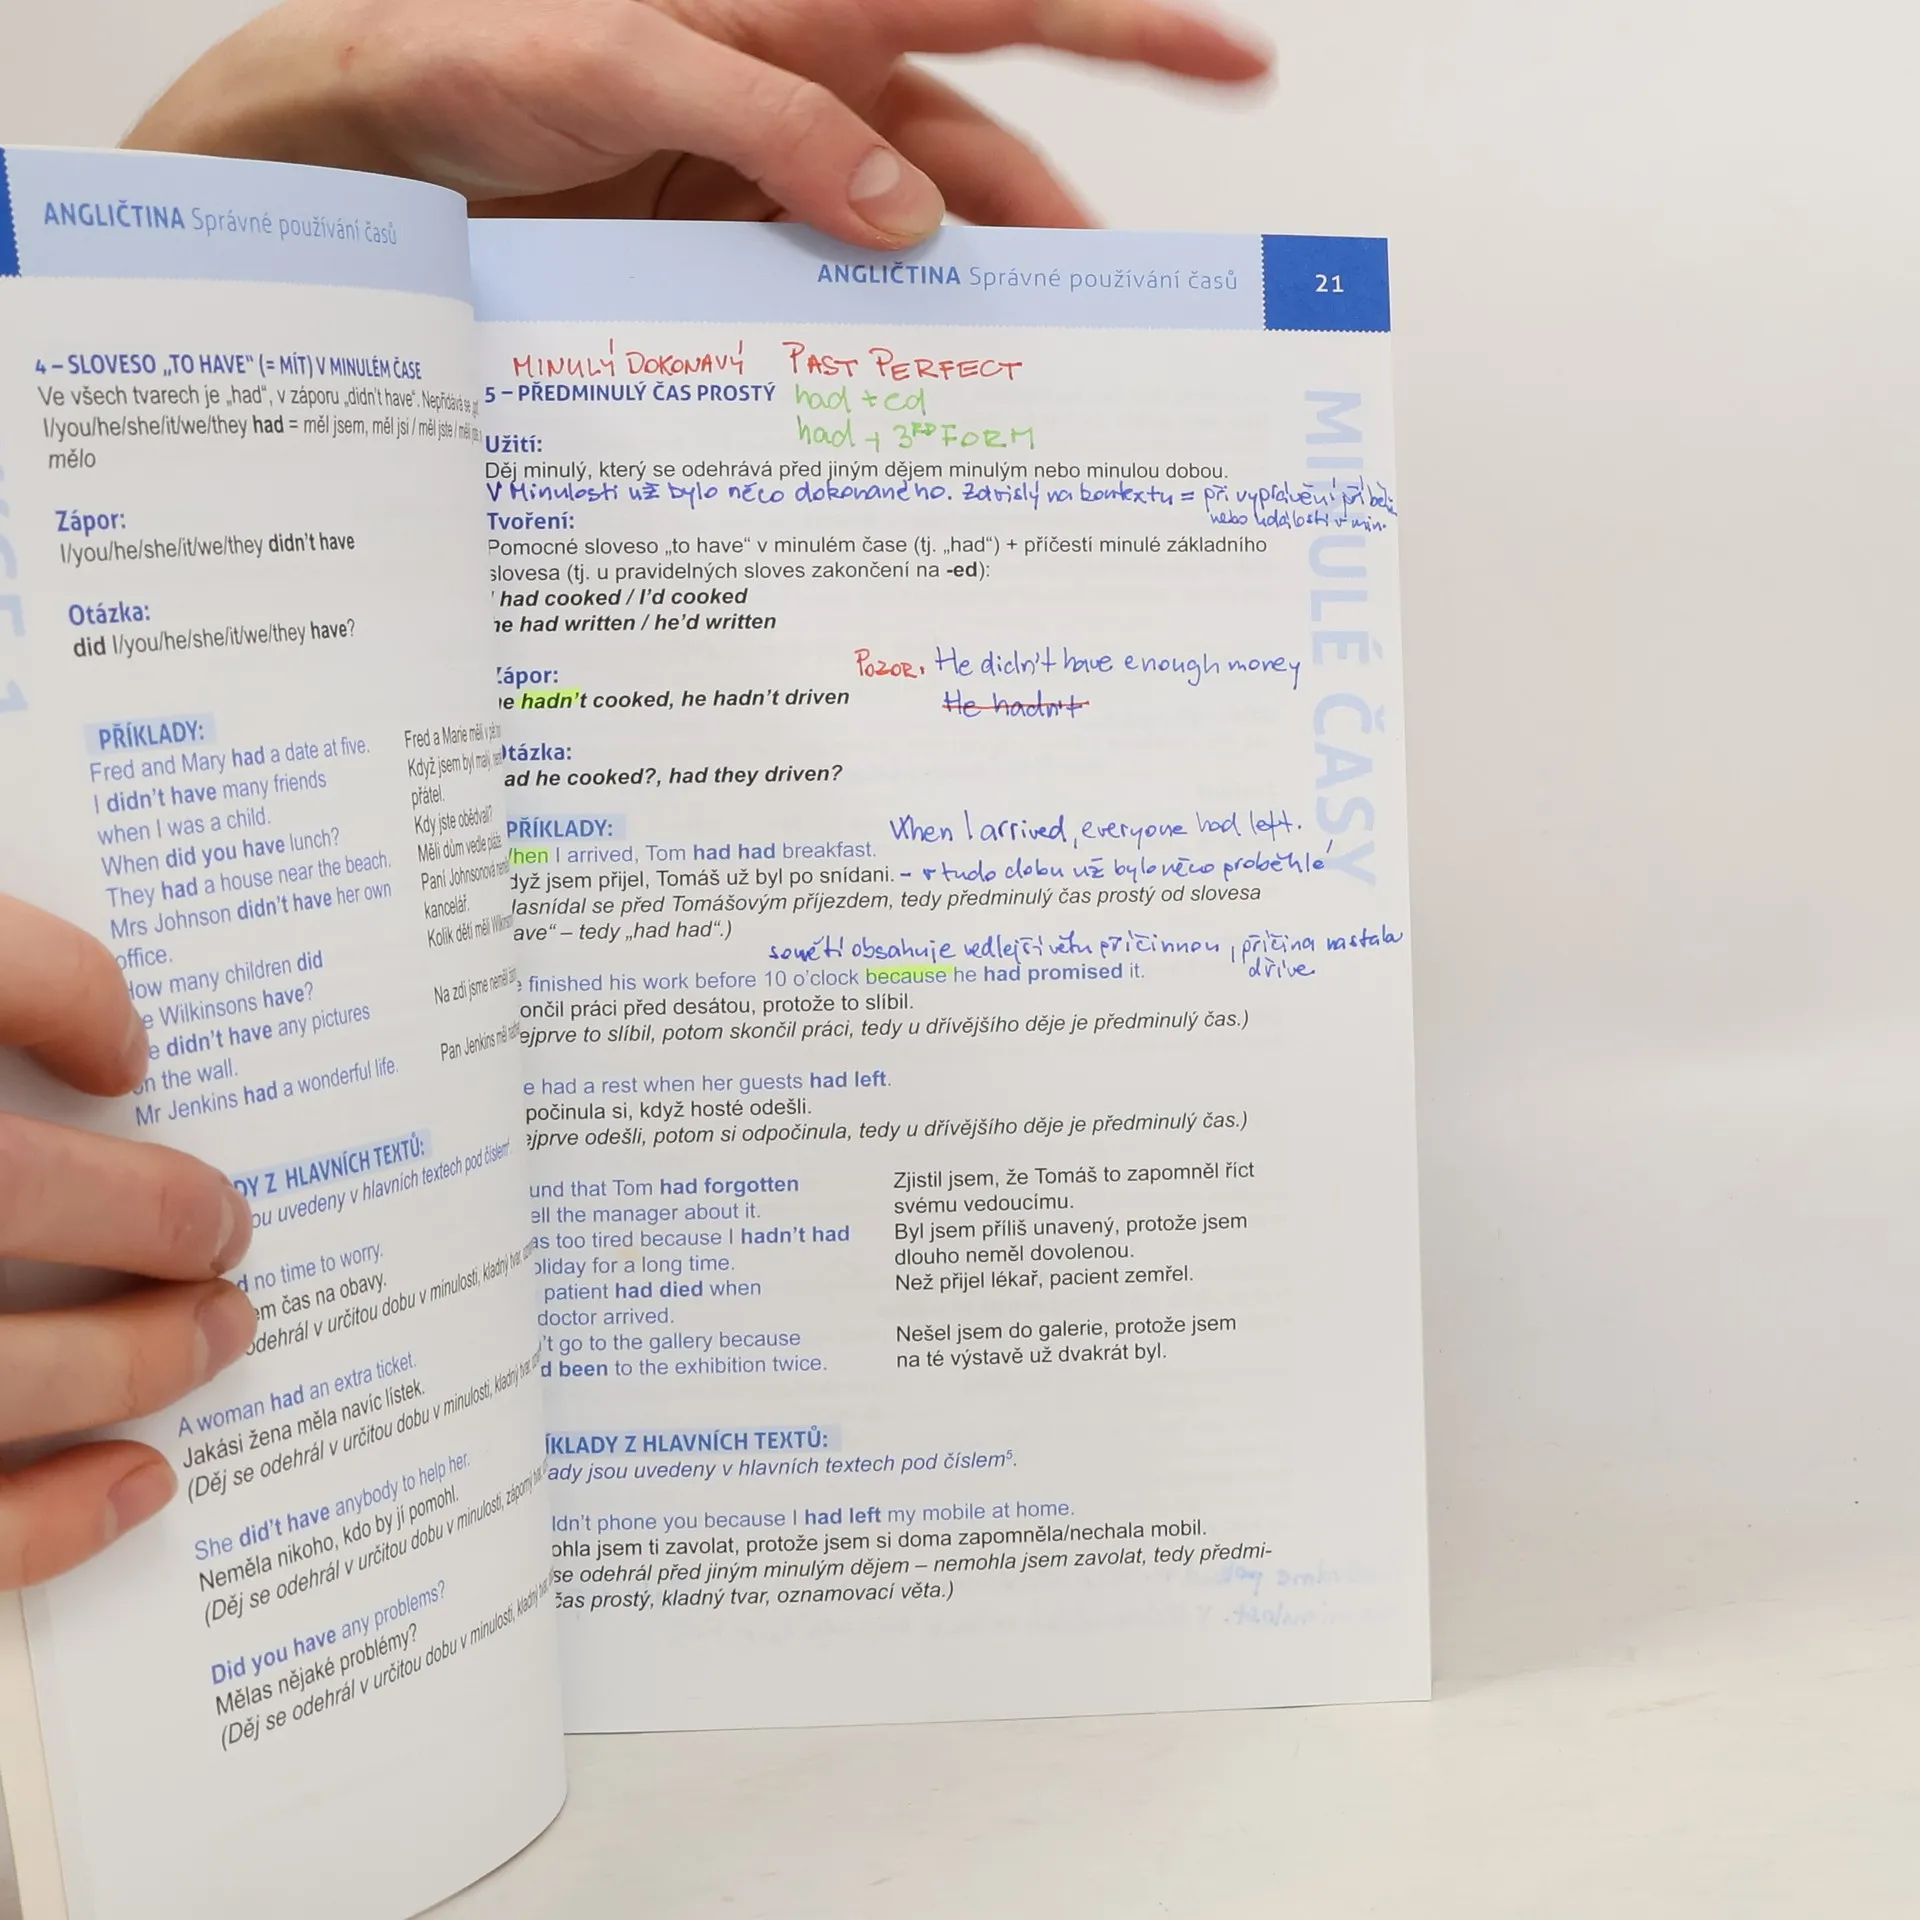 ANGLIČTINA Správné používání časů
4 – SLOVESO „TO HAVE“ (= MÍT) V MINULÉM ČASE
Ve všech tvarech je „had“, v záporu „didn't have“. Nepřidává se
I/you/he/she/it/we/they had = měl jsem, měl jsi / měl jste /
mělo
Zápor:
I/you/he/she/it/we/they didn't have
Otázka:
did I/you/he/she/it/we/they have?
PŘÍKLADY:
Fred and Mary had a date at five.
I didn't have many friends
when I was a child.
When did you have lunch?
They had a house near the beach.
Mrs Johnson didn't have her own
office.
How many children did
e Wilkinsons have?
e didn't have any pictures
on the wall.
Mr Jenkins had a wonderful life.
Fred a Marie měli v
Když jsem byl malý,
přátel.
Kdy jste obědvali?
Měli dům vedle pláže.
Paní Johnsonová
kancelář.
Kolik dětí měli
Na zdi jsme neměli
Pan Jenkins měl
DY Z HLAVNÍCH TEXTŮ:
ou uvedeny v hlavních textech pod číslem
d no time to worry.
em čas na obavy.
odehrál v určitou dobu v minulosti, kladný tvar,
A woman had an extra ticket.
Jakási žena měla navíc lístek.
(Děj se odehrál v určitou dobu v minulosti, kladný tvar,
She did't have anybody to help her.
Neměla nikoho, kdo by jí pomohl.
(Děj se odehrál v určitou dobu v minulosti, záporný tvar,
Did you have any problems?
Mělas nějaké problémy?
(Děj se odehrál v určitou dobu v minulosti, kladný tvar,
ANGLIČTINA Správné používání časů
21
MINULÉ ČASY
MINULÝ DOKONAVÝ PAST PERFECT
5 – PŘEDMINULÝ ČAS PROSTÝ
had + ed
had + 3RD FORM
Užití:
Děj minulý, který se odehrává před jiným dějem minulým nebo minulou dobou.
V Minulosti už bylo něco dokonaného. Závislý na kontextu = při vyprávění
nebo událostí v min.
Tvoření:
Pomocné sloveso „to have“ v minulém čase (tj. „had“) + příčestí minulé základního
slovesa (tj. u pravidelných sloves zakončení na -ed):
had cooked / I'd cooked
he had written / he'd written
Zápor:
e hadn't cooked, he hadn't driven
POZOR, He didn't have enough money
He hadn't
Otázka:
ad he cooked?, had they driven?
PŘÍKLADY:
When I arrived, everyone had left.
hen I arrived, Tom had had breakfast.
dyž jsem přijel, Tomáš už byl po snídani. – v tudo dobu už bylo něco proběhlé
asnídal se před Tomášovým příjezdem, tedy předminulý čas prostý od slovesa
ave“ – tedy „had had“.)
souvětí obsahuje vedlejší větu příčinnou, příčina nastala
dříve
e finished his work before 10 o'clock because he had promised it.
ončil práci před desátou, protože to slíbil.
ejprve to slíbil, potom skončil práci, tedy u dřívějšího děje je předminulý čas.)
e had a rest when her guests had left.
počinula si, když hosté odešli.
ejprve odešli, potom si odpočinula, tedy u dřívějšího děje je předminulý čas.)
und that Tom had forgotten
ell the manager about it.
as too tired because I hadn't had
oliday for a long time.
patient had died when
doctor arrived.
't go to the gallery because
d been to the exhibition twice.
Zjistil jsem, že Tomáš to zapomněl říct
svému vedoucímu.
Byl jsem příliš unavený, protože jsem
dlouho neměl dovolenou.
Než přijel lékař, pacient zemřel.
Nešel jsem do galerie, protože jsem
na té výstavě už dvakrát byl.
ÍKLADY Z HLAVNÍCH TEXTŮ:
ady jsou uvedeny v hlavních textech pod číslem⁵.
ldn't phone you because I had left my mobile at home.
ohla jsem ti zavolat, protože jsem si doma zapomněla/nechala mobil.
se odehrál před jiným minulým dějem – nemohla jsem zavolat, tedy předmi-
čas prostý, kladný tvar, oznamovací věta.)